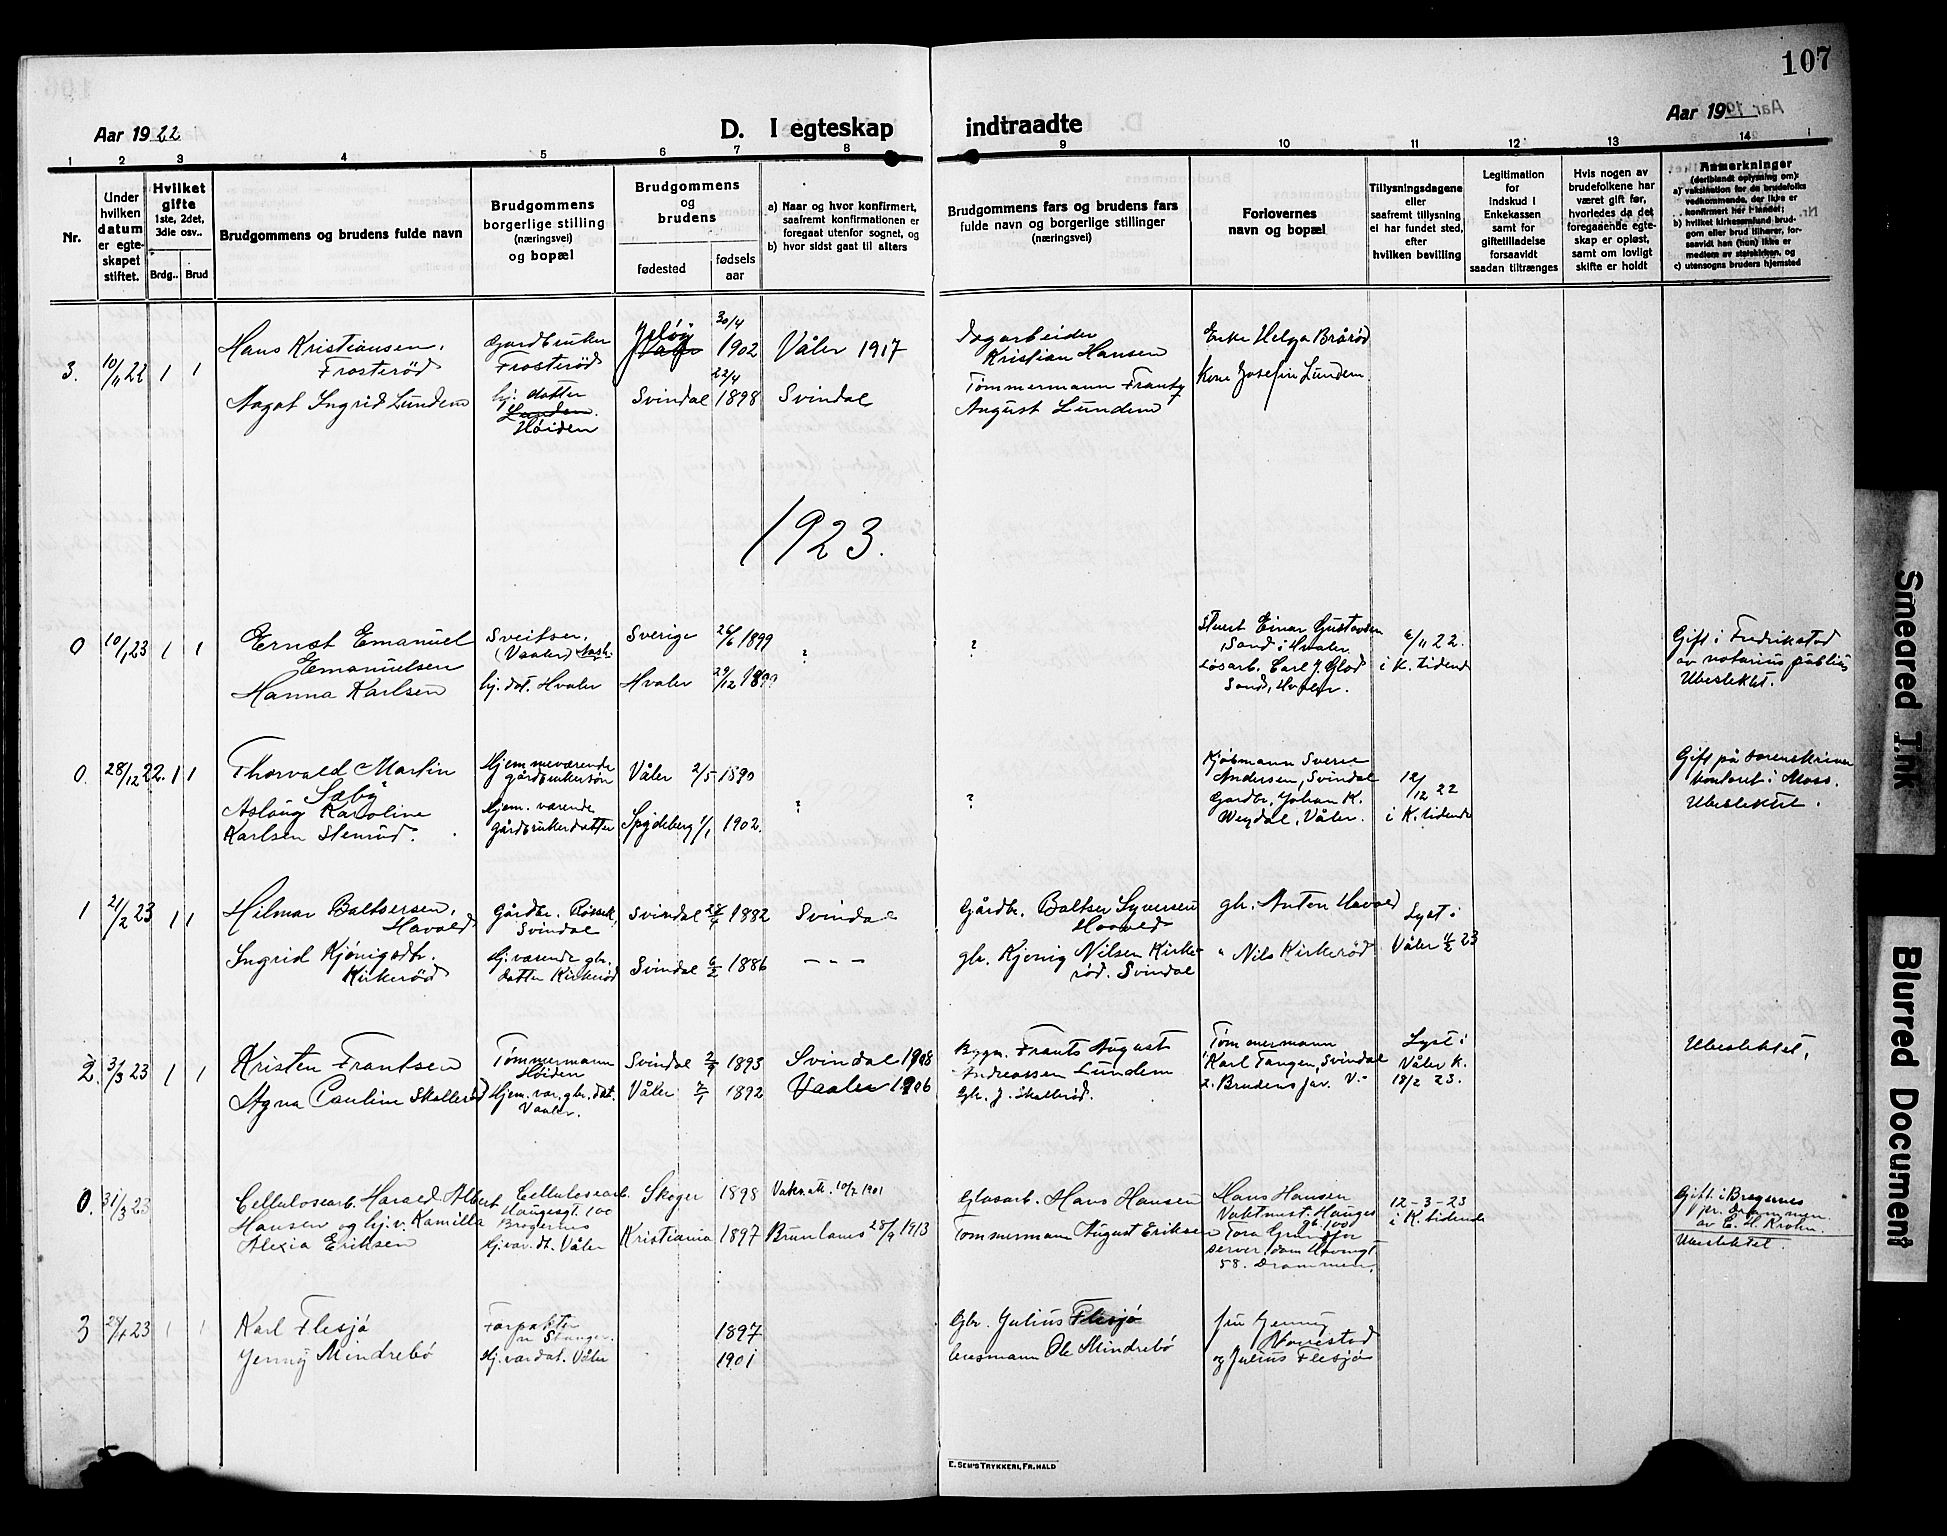 107
Aar 1922
D. I egteskap
indtraadte
Aar 19
1 2 3 4 5 6 7 8 9 10 11 12 13 14
Nr.
Under
hvilken
datum
er egte-
skapet
stiftet.
Hvilket
gifte
1ste, 2det,
3die osv..
Brdg.. Brud
Brudgommens og brudens fulde navn
Brudgommens
borgerlige stilling
(næringsvei)
og bopæl
Brudgommens
og
brudens
fødested
fødsels
aar
a) Naar og hvor konfirmert,
saafremt konfirmationen er
foregaat utenfor sognet, og
b) hvor sidst gaat til alters
Brudgommens fars og brudens fars
fulde navn og borgerlige stillinger
(næringsvei)
Forlovernes
navn og bopæl
Tillysningsdagene
eller
saafremt tillysning
ei har fundet sted,
efter
hvilken bevilling
Legitimation
for
indskud i
Enkekassen
samt for
giftetilladelse
forsaavidt
saadan tiltrænges
Hvis nogen av
brudefolkene har
været gift før,
hvorledes da det
foregaaende egte-
skap er opløst,
samt om lovligt
skifte er holdt
Anmerkninger
(deriblandt oplysning om):
a) vaksination for de brudefolks
vedkommende, der ikke er
konfirmert her i landet;
b) hvilket kirkesamfund brud-
gom eller brud tilhører, for-
saavidt han (hun) ikke er
medlem av statskirken, og
c) utensogns bruders hjemsted
3. 10/11 22 1 1
Hans Kristiansen,
Frosterød
Aagot Ingrid Lundem
Gardbruker
Frosterød
hj. datter
Lunden.
Høiden
Jeløy
30/4
1902
Våler 1917
Svindal
22/4
1898
Svindal
Dagarbeider
Kristian Hansen
Tømmermann Frantz
August Lundem
Enke Helga Brårød
Kone Josefine Lundem
1923.
0 10/1 23 1 1
Ernst Emanuel
Emanuelsen
Hanna Karlsen
Sveitser,
(Vaaler)
hj. dat. Hvaler
Sverige 26/6 1899
Hvaler 29/12
?
?
Einar Gustavsen
Sand i Hvaler
Løsarb. Carl J. Glad
Sand, Hvaler.
6/11 22.
i K. tidende
Gift i Fredrikstad
av notarius publicus
Ubeslektet.
0. 28/12 22. 1 1
Thorvald Martin
Sæby
Aslaug Karoline
Karlsen Stenrud.
Hjemmeværende
gårdbrukersøn
Hjem. værende
gårdbrukerdatter
Våler 2/5 1890
Spydeberg 1/1 1902.
?
?
Kjøbmann Sverre
Andersen, Svindal
Gardbr. Johan K.
Weydal, Våler.
12/12 22
i K. tidende
Gift på Sorenskriver
kontoret i Moss.
Ubeslektet.
1 21/2 23 1 1
Hilmar Baltsersen,
Havold
Ingrid Kjønigsdtr.
Kirkerød
Gårdbr.
Svindal
Hj. værende gbr.
datter Kirkerød
Svindal 1882
Svindal 6/2 1886
Svindal
— — —
Gårdbr. Baltser Syversen
Haavold
gbr. Kjønig Nilsen Kirke-
rød. Svindal
gbr. Anton Havold
" Nils Kirkerød
Lyst i
Våler 11/2 23
2. 3/3 23 1 1
Kristen Frantsen
Agna Pauline Skallerød
Tømmermann
Høiden
Hjem. vær. gbr. dat.
Vaaler.
Svindal 1893
Våler 1892
Svindal 1908
Vaaler 1906
Bygn. Frants August
Andreassen Lundem
Gbr. J. Skallerød.
Tømmermann
Karl Tangen, Svindal
2. Brudens far. V.
Lyst i
Våler K.
18/2 23.
Ubeslektet.
0. 31/3 23
Cellulosearb. Harald Albert
Hansen og hj. v. Kamilla
Alexia Eriksen
Cellulosearb.
Haugesgt. 100
Bragernes
Hj. vær. dt. Våler
Skoger 1898
Kristiania 1897
Vaks. att. 10/7 1901
Brunlanes 28/9 1913
Glasarb. Hans Hansen
Tømmermann August Eriksen
Hans Hansen
Vaktmest. Hauges
gt. 100
Tora
58. Drammen.
12-3-23
i K. tidende
Gift i Bragernes
pr. Drammen.
av C. H. Krohn.
Ubeslektet.
3 23 1 1
Karl Flesjø
Jenny Mindrebø
Forpakter
Hj. vær dat. Våler
1897
1901
Gbr. Julius Flesjø
Ole Mindrebø
fru Jenny
Norestad
og Julius Flesjø
E. SEM'S TRYKKERI, FR.HALD
Smeared Ink
Blurred Document